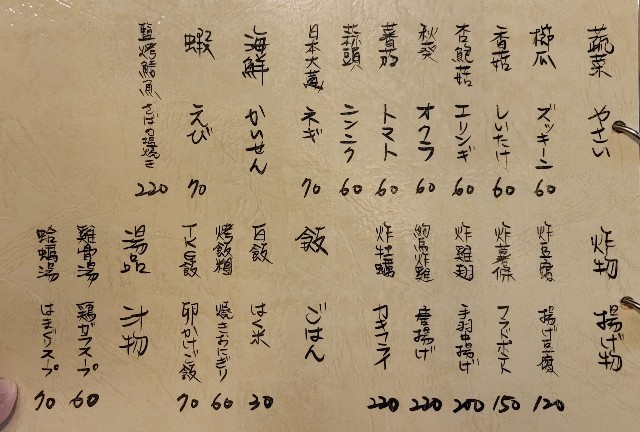 蔬菜 やさい
櫛瓜 ズッキーニ 60
香菇 しいたけ 60
杏鮑菇 エリンギ 60
秋葵 オクラ 60
蕃茄 トマト 60
蒜頭 ニンニク 60
日本大蔥 ネギ 70
海鮮 かいせん
蝦 えび 70
鹽烤鯖魚 さば塩焼き 220
炸物 揚げ物
炸豆腐 揚げ豆腐 120
炸薯條 フライポテト 150
炸雞翅 手羽中揚げ 200
炸雞 唐揚げ 220
炸牡蠣 カキフライ 220
飯 ごはん
白飯 はく米 30
烤飯糰 焼きおにぎり 60
TKG飯 卵かけご飯 70
湯品 汁物
雞骨湯 鶏ガラスープ 60
蛤蠣湯 はまぐりスープ 70